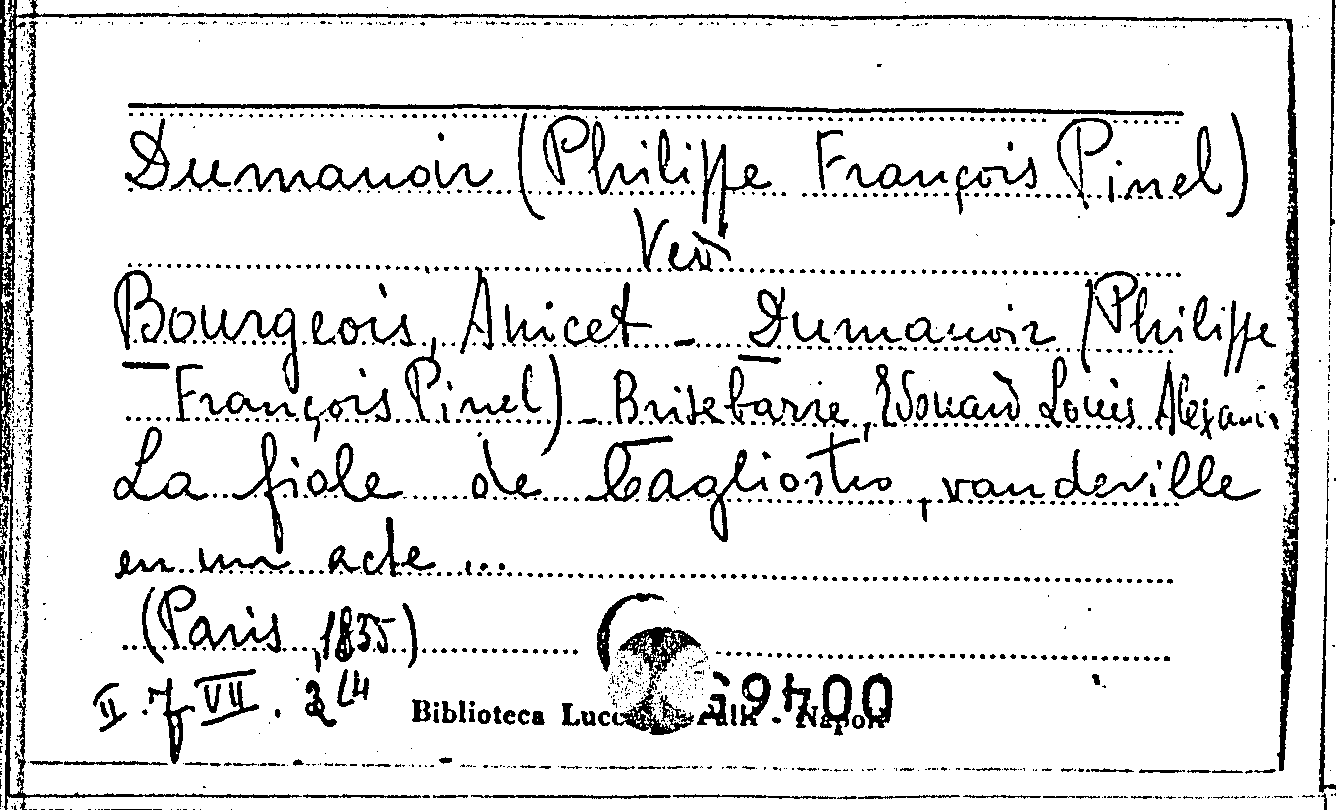 Dumanoir (Philippe François Pinel)
Vedi
Bourgeois, Anicet - Dumanoir (Philippe
François Pinel) - Brisebarre, Edouard Louis Alexand.
La fiole de Cagliostro, vaudeville
en un acte ...
(Paris, 1835)
II. 7 VII. 2
Biblioteca - Napoli